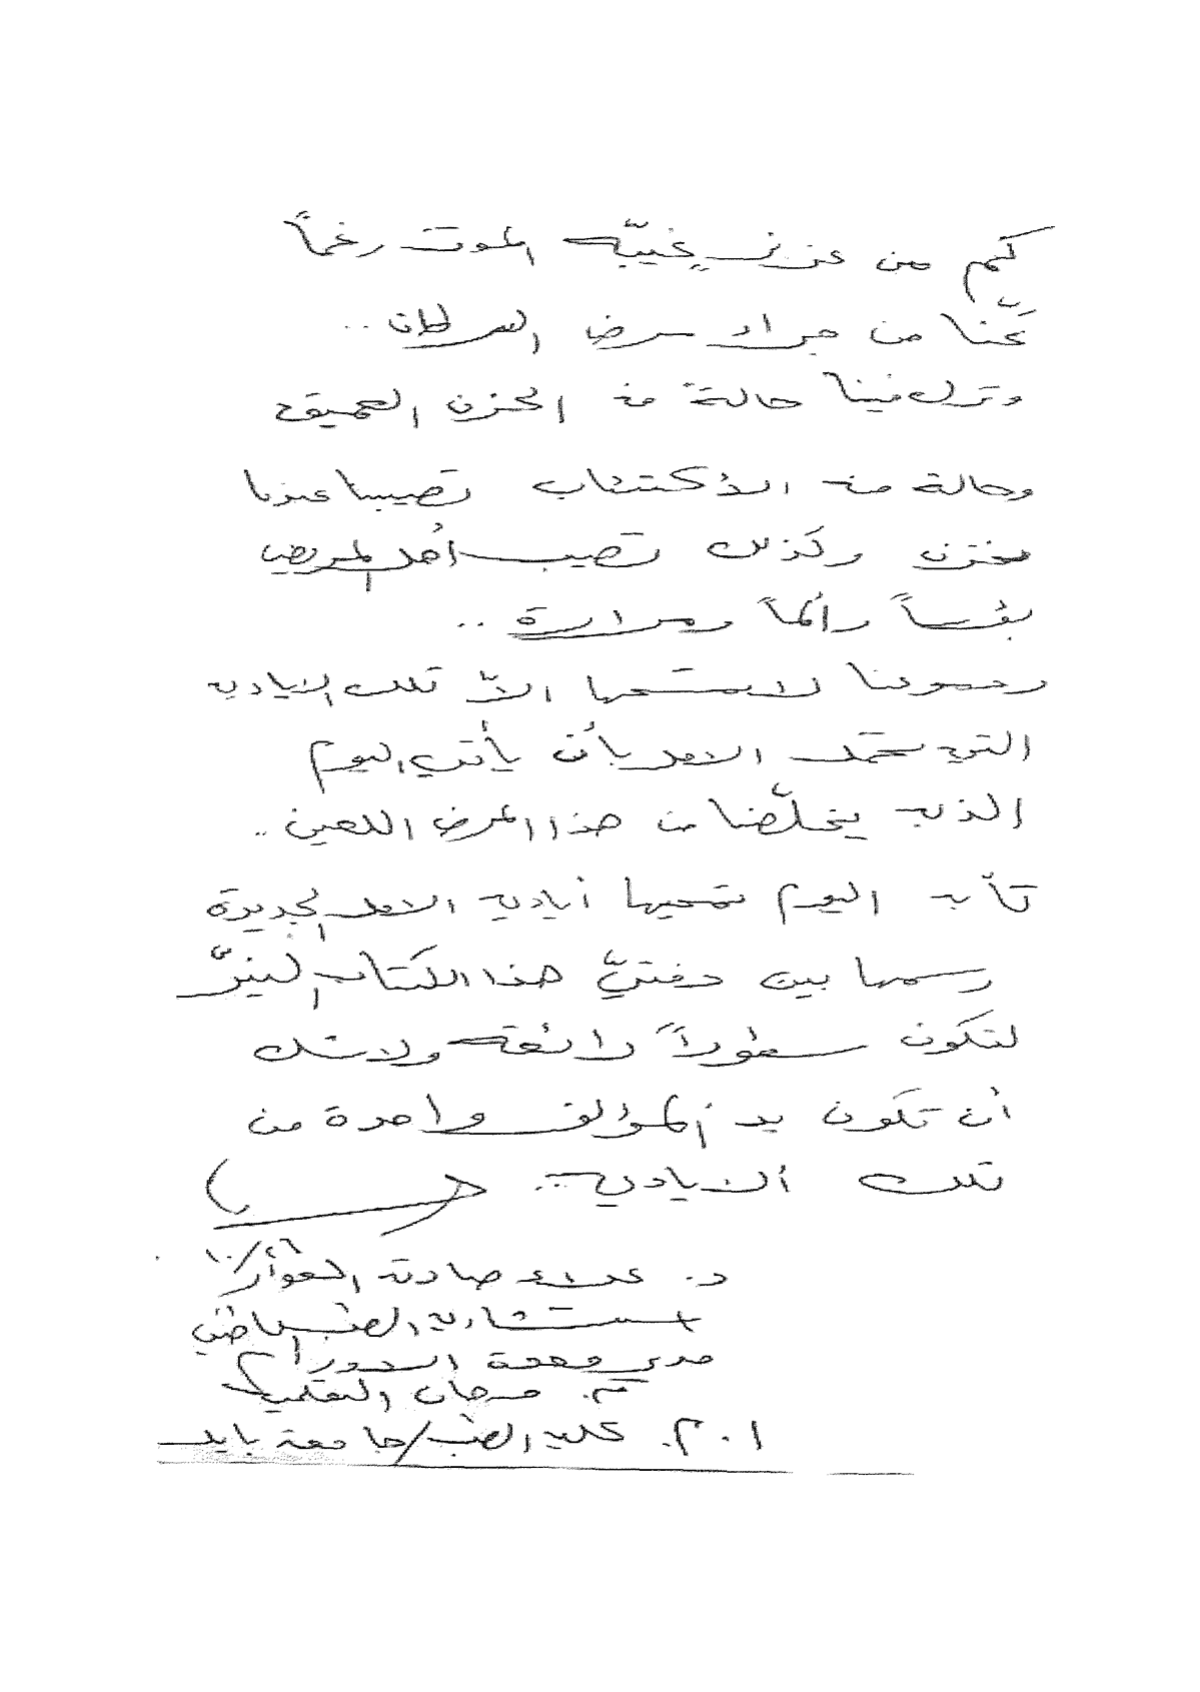 كم من عزيزٍ غيّبه الموت رغماً
عنّا من جراء مرض السرطان ..
وترك فينا حالة من الحزن العميق
وحالة من الاكتئاب تصيبنا عندما
نحزن وكذلك تصيب أهل المريض
بؤساً وألماً ومرارة ..
ودموعنا لا يمسحها الاّ تلك الايادي
التي تحمل الامل بأن يأتي اليوم
الذي يخلّصنا من هذا المرض اللعين ..
تأتي اليوم تمحيها أيادي الامل الجديدة
رسمها بين دفتيّ هذا الكتاب النيّر
لتكون سطوراً رائعة ولا شك
أن تكون يد المؤلف واحدة من
تلك الايادي ...
د. علاء صادق
استشاري الطب الباطني
مدير وحدة الاورام
م. مرجان التعليمي
ا.م. كلية الطب/جامعة بابل